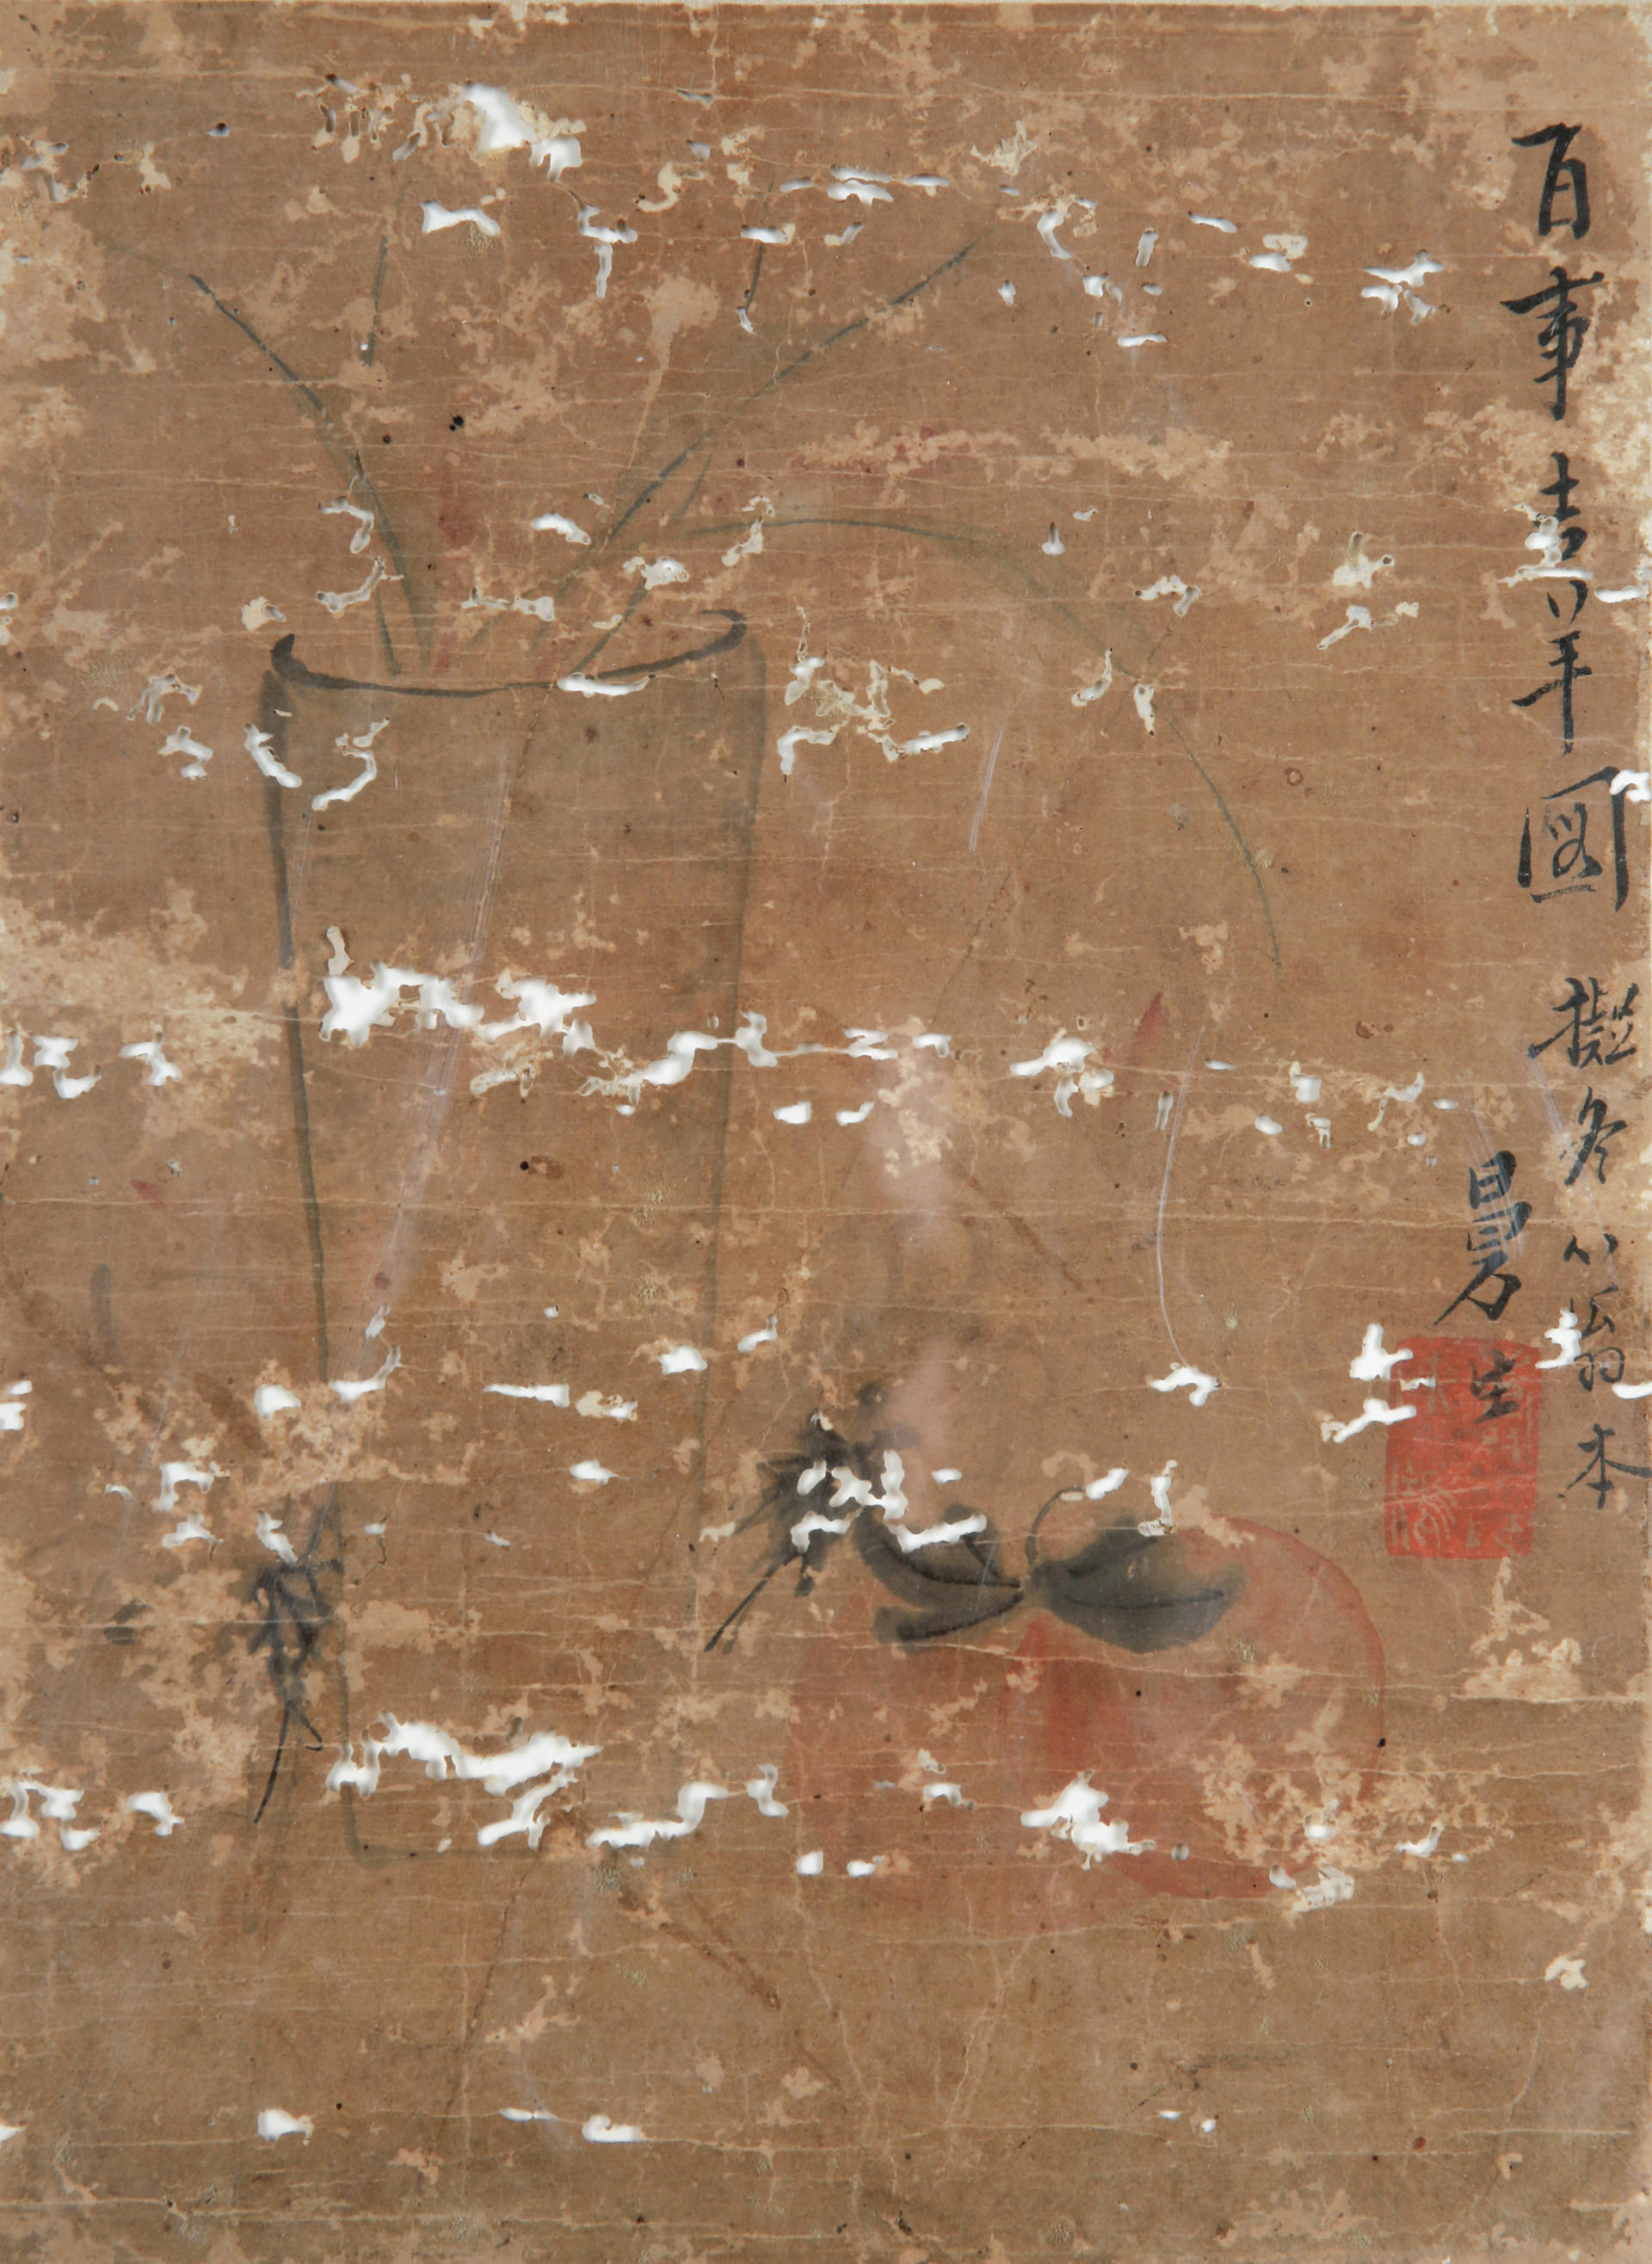 百事吉羊圖 擬冬心翁本
曼生